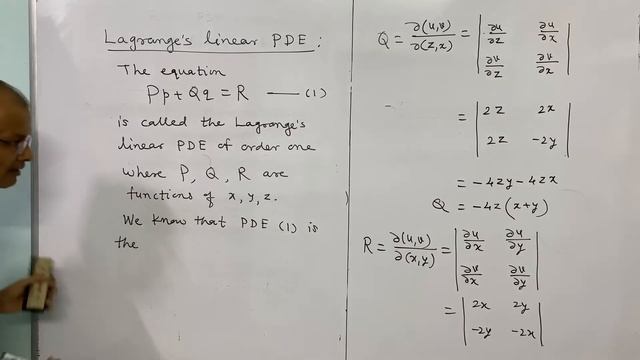 Lagrange's linear PDE :
The equation
Pp + Qq = R —— (1)
is called the Lagrange's
linear PDE of order one
where P, Q, R are
functions of x, y, z.
We know that PDE (1) is
the
Q = ∂(u,v)/∂(z,x) = | ∂u/∂z ∂u/∂x |
| ∂v/∂z ∂v/∂x |
= | 2z 2x |
| 2z -2y |
= -4zy - 4zx
Q = -4z(x+y)
R = ∂(u,v)/∂(x,y) = | ∂u/∂x ∂u/∂y |
| ∂v/∂x ∂v/∂y |
= | 2x 2y |
| -2y -2x |